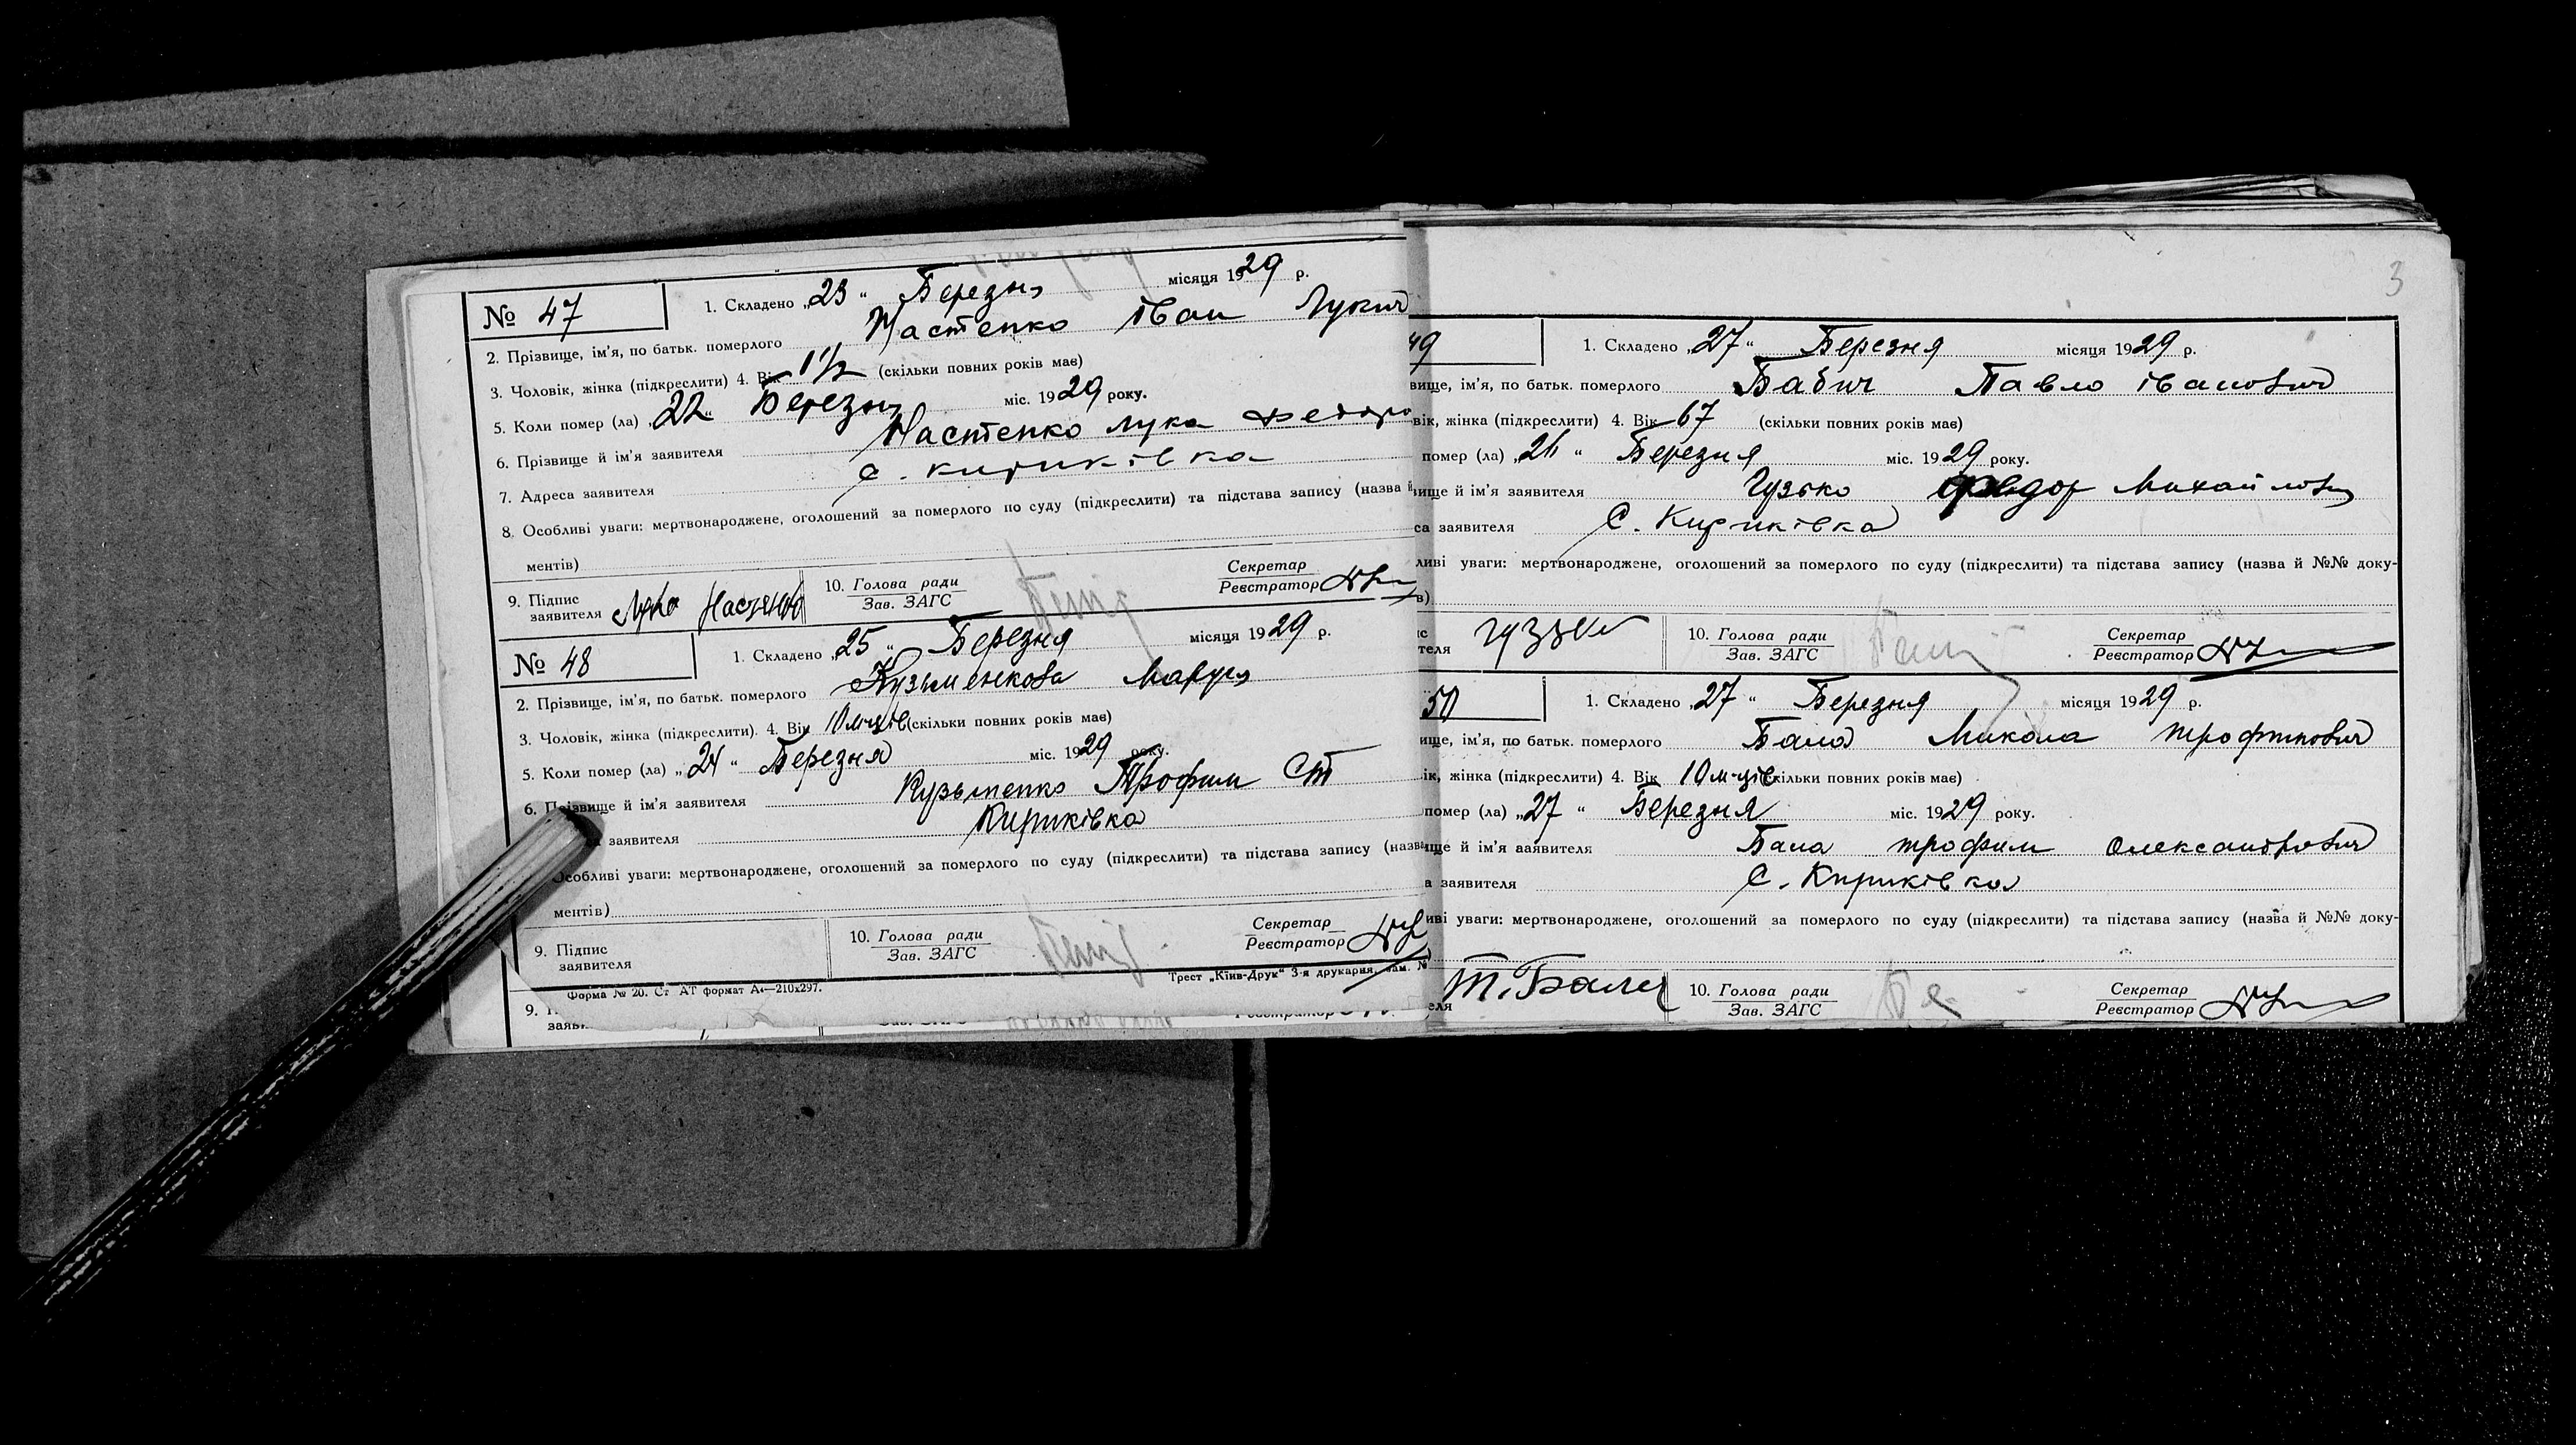 № 47
1. Складено „23“ Березня місяця 1929 р.
2. Прізвище, ім'я, по батьк. померлого Настенко Іван Лукич
3. Чоловік, жінка (підкреслити) 4. Вік 1½ (скільки повних років має)
5. Коли помер (ла) „22“ Березня міс. 1929 року.
6. Прізвище й ім'я заявителя Настенко Лука Федоро
7. Адреса заявителя С. Кириківка
8. Особливі уваги: мертвонароджене, оголошений за померлого по суду (підкреслити) та підстава запису (назва й
ментів)
9. Підпис заявителя Лука Настенко 10. Голова ради Зав. ЗАГС Секретар Реєстратор
№ 48
1. Складено „25“ Березня місяця 1929 р.
2. Прізвище, ім'я, по батьк. померлого Кузьменкова Маруся
3. Чоловік, жінка (підкреслити). 4. Вік 10 м-ців (скільки повних років має)
5. Коли помер (ла) „24“ Березня міс. 1929 року.
6. Прізвище й ім'я заявителя Кузьменко Трофим Ст
заявителя Кириківка
Особливі уваги: мертвонароджене, оголошений за померлого по суду (підкреслити) та підстава запису (назва
ментів)
9. Підпис заявителя 10. Голова ради Зав. ЗАГС Секретар Реєстратор
Форма № 20. Ст АТ формат А4—210х297. Трест „Київ-Друк“ 3-я друкарня. Зам. №
3
49
1. Складено „27“ Березня місяця 1929 р.
вище, ім'я, по батьк. померлого Бабич Павло Іванович
вік, жінка (підкреслити) 4. Вік 67 (скільки повних років має)
помер (ла) „26“ Березня міс. 1929 року.
вище й ім'я заявителя Гузько Федор Михайлович
са заявителя С. Кириківка
ливі уваги: мертвонароджене, оголошений за померлого по суду (підкреслити) та підстава запису (назва й №№ доку-
в)
теля Гузько 10. Голова ради Зав. ЗАГС Секретар Реєстратор
50
1. Складено „27“ Березня місяця 1929 р.
ище, ім'я, по батьк. померлого Бала Микола Трофимович
ік, жінка (підкреслити) 4. Вік 10 м-ців скільки повних років має)
помер (ла) „27“ Березня міс. 1929 року.
ище й ім'я заявителя Бала Трофим Олександрович
а заявителя С. Кириківка
иві уваги: мертвонароджене, оголошений за померлого по суду (підкреслити) та підстава запису (назва й №№ доку-
еля Т. Бала 10. Голова ради Зав. ЗАГС Секретар Реєстратор